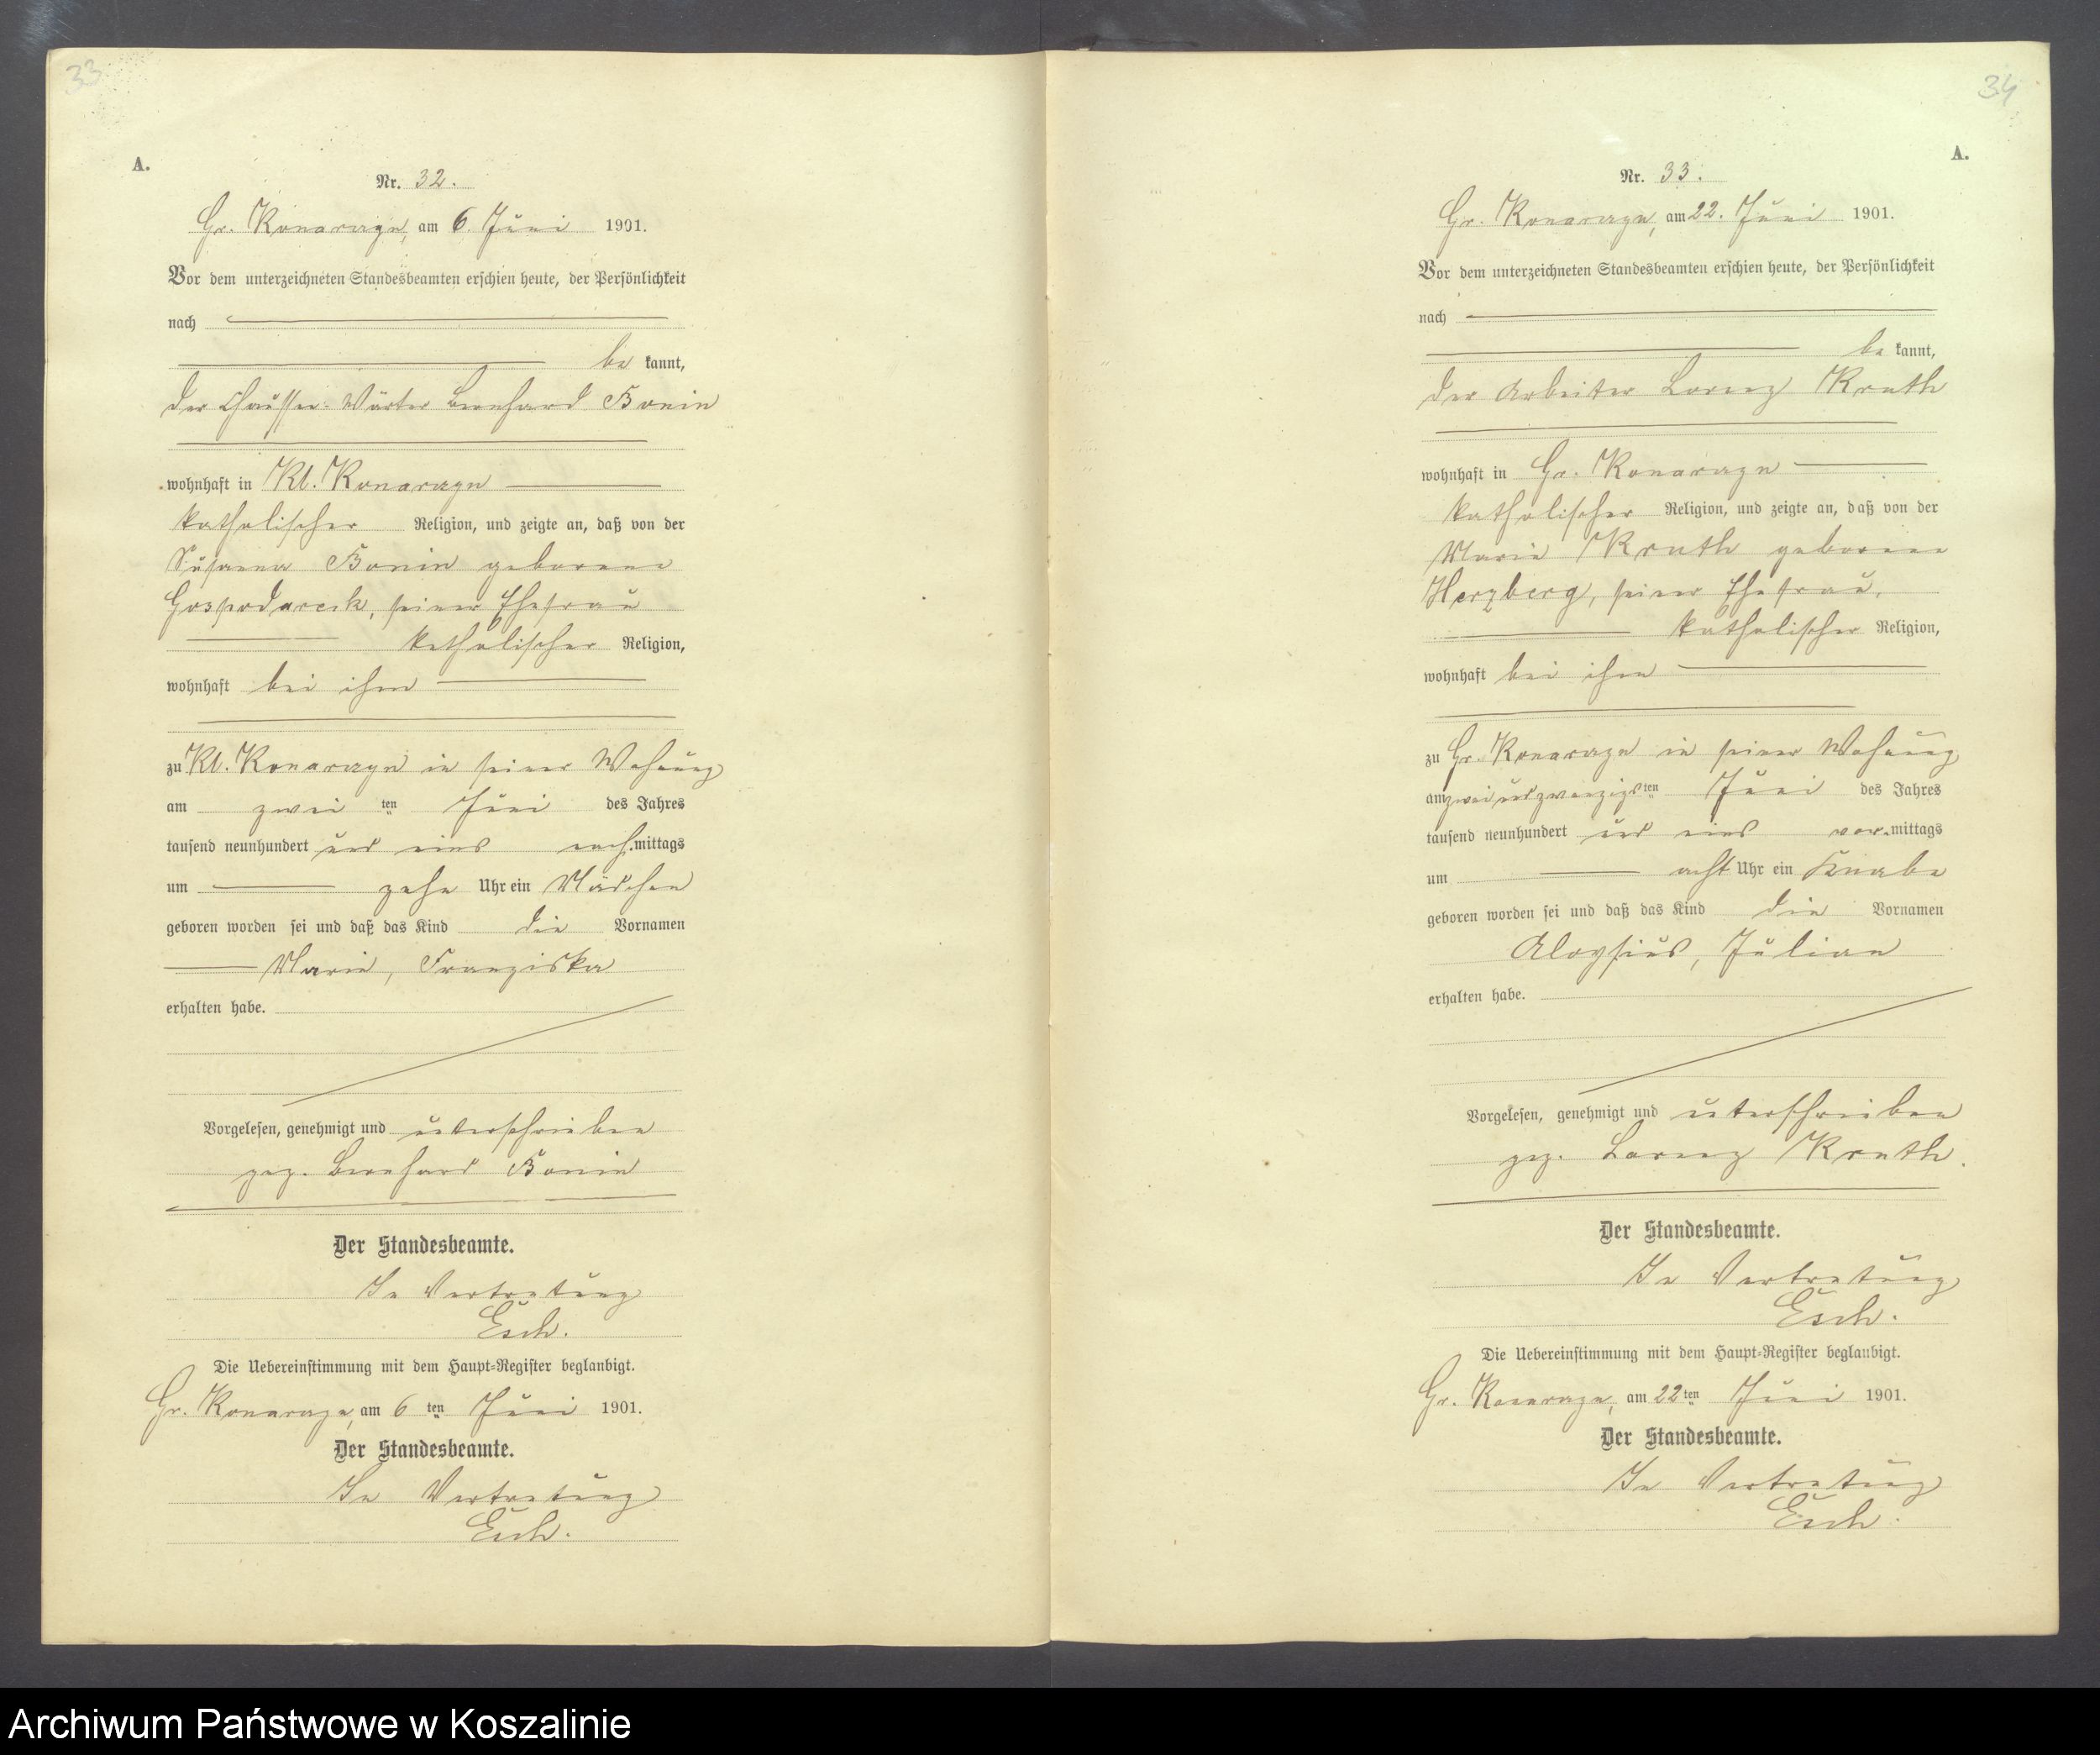 33
A.
Nr. 32.
Gr. Konarczyn, am 6. Juni 1901.
Vor dem unterzeichneten Standesbeamten erschien heute, der Persönlichkeit
nach
be kannt,
der Chaussee-Wärter Bernhard Bonin
wohnhaft in Kl. Konarczyn
katholischer Religion, und zeigte an, daß von der
Susanna Bonin geborene
Gospodareck, seiner Ehefrau
katholischer Religion,
wohnhaft bei ihm
zu Kl. Konarczyn in seiner Wohnung
am zwei ten Juni des Jahres
tausend neunhundert und eins nach mittags
um zehn Uhr ein Mädchen
geboren worden sei und daß das Kind die Vornamen
Marie, Franziska
erhalten habe.
Vorgelesen, genehmigt und unterschrieben
gez. Bernhard Bonin
Der Standesbeamte.
In Vertretung
Esch.
Die Uebereinstimmung mit dem Haupt-Register beglaubigt.
Gr. Konarczyn, am 6 ten Juni 1901.
Der Standesbeamte.
In Vertretung
Esch.
34
A.
Nr. 33.
Gr. Konarczyn, am 22. Juni 1901.
Vor dem unterzeichneten Standesbeamten erschien heute, der Persönlichkeit
nach
be kannt,
der Arbeiter Lorenz Kruth
wohnhaft in Gr. Konarczyn
katholischer Religion, und zeigte an, daß von der
Marie Kruth geborene
Herzberg, seiner Ehefrau,
katholischer Religion,
wohnhaft bei ihm
zu Gr. Konarczyn in seiner Wohnung
am zweiundzwanzigs ten Juni des Jahres
tausend neunhundert und eins vor mittags
um acht Uhr ein Knabe
geboren worden sei und daß das Kind die Vornamen
Aloysius, Julian
erhalten habe.
Vorgelesen, genehmigt und unterschrieben
gez. Lorenz Kruth.
Der Standesbeamte.
In Vertretung
Esch.
Die Uebereinstimmung mit dem Haupt-Register beglaubigt.
Gr. Konarczyn, am 22 ten Juni 1901.
Der Standesbeamte.
In Vertretung
Esch.
Archiwum Państwowe w Koszalinie